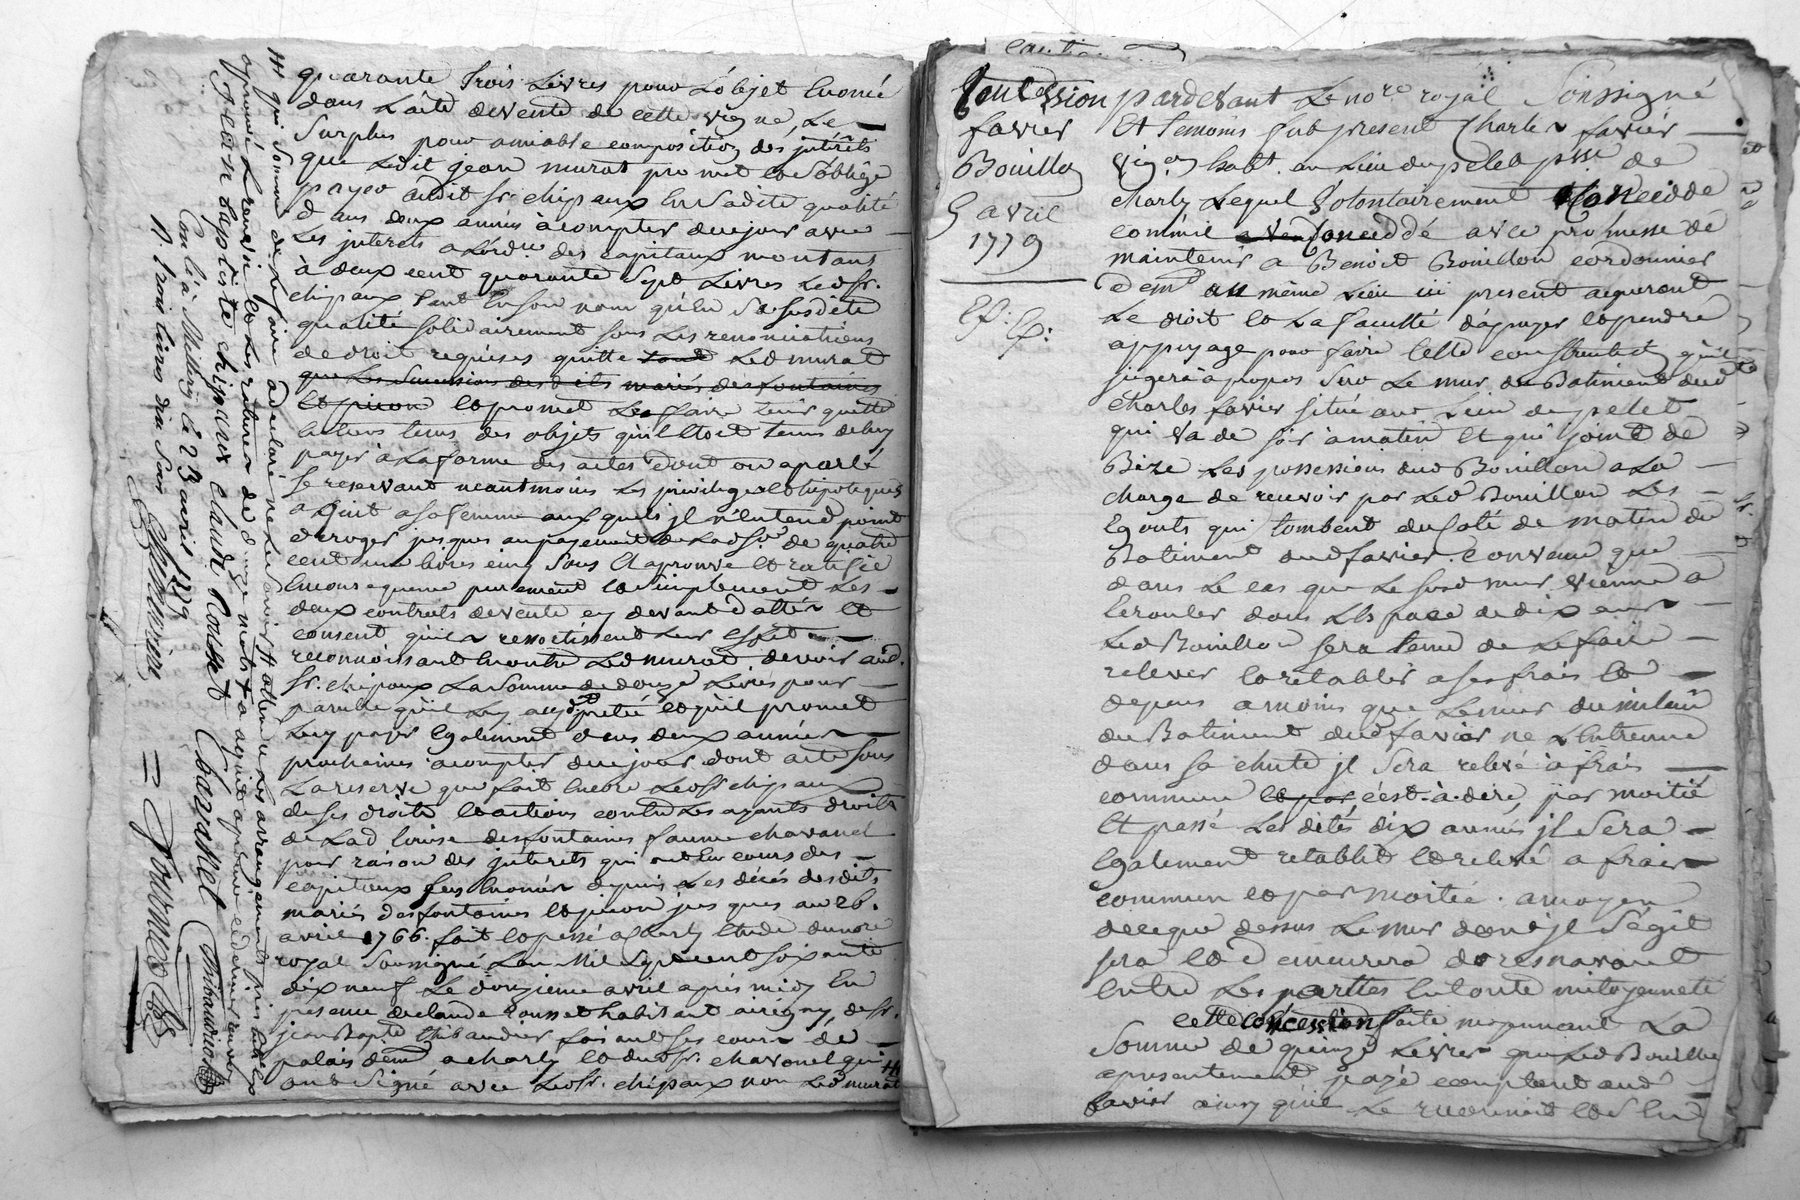 quarante trois Livres pour L'objet Enoncé
dans L'acte de vente de cette vigne, Le
Surplus pour amiable composition des jnterêts
que Ledit jean murat promet et s'obblige
payer audit Sr. chipaux En Sadite qualité
dans deux années à compter de ce jour avec
Les jnterets a L'ordre des capitaux montans
à deux cent quarante Sept Livres Led Sr.
chipaux tant En Son nom qu'En Sa Susdite
qualité solidairement sous Les renonciations
de droit requises quitte Led murat
que Les Successions desdits mariés desfontaines
et picon et promet Le faire tenir quitte
Envers tous des objets qu'il Etoit tenu de luy
payer à La forme des actes dont on a parlé
Se reservant neantmoins Les privileges et hipoteques
acquit a sa femme auxquels jl n'Entend point
deroger jusques au payement de Lad so. de quatre
cent une livres cinq Sous Et aprouve et ratifie
En consequence purement et simplement Les
deux contrats de vente cy devant dattés Et
consent qu'ils ressortissent Leur Effet
reconnoissant En outre Led murat devoir aud.
Sr. chipaux La Somme de douze Livres pour
pareille qu'il Luy a cy d. preté et qu'il promet
Luy payer Egalement dans deux années
prochaines à compter de ce jour dont acte sous
La reserve que fait Encore Led Sr chipaux
de ses droits et actions contre Les ayants droits
de Lad Louise desfontaines femme chavanel
pour raison des jnterets qui ont Eu cours des
capitaux sus Enoncés depuis Les décès desdits
mariés desfontaines et picon jusques au 26.
avril 1766. fait et passé a Charly Etude du no.re
royal Soussigné L'an Mil Sept cent soixante
dix neuf Le douzieme avril après midy En
presence de claude rousset habitant à irigny, de Sr.
jean Bapt. thibaudier faisant ses cours de
palais dem. a charly et dud Sr. chavanel qui
ont Signé avec Led Sr. chipaux non Led murat
qui Sommé de ce faire a declaré ne Le Savoir Attendu Les arrangements pris
aprouvé Le renvoi et Les ratures de douze mots
Joseane baptiste chipaux Claude Rousset Chavanel Thibaudier
Con lé à Millery le 23 avril 1779
R. trois livres dix Sous
concession
favier
Bouillon
5 avril
1779
pardevant Le no.re royal Soussigné
Et temoins fut present Charles favier
vig.on habt. au Lieu du pelet psse de
charly Lequel volontairement concedde
comme a concedé avec promesse de
maintenir a Benoit Bouillon cordonnier
dem.t au même Lieu ici present acquerant
Le droit et La faculté d'apuyer et prendre
appuyage pour faire telle construction qu'il
jugera à propos Sur Le mur du Batiment dud
charles favier situé aud Lieu du pelet
qui va de soir à matin Et qui joint de
Bize Les possessions dud Bouillon a La
charge de recevoir par Led Bouillon Les
Egouts qui tombent du Coté de matin du
Batiment dud favier. Convenu que
dans Le cas que Le susd mur vienne a
s'ecrouler dans L'Espace de dix ans
Led Bouillon sera tenu de Le faire
relever et retablir a ses frais et
depens a moins que Le mur du milieu
du Batiment dud favier ne L'Entrenne
dans sa chute jl Sera relevé à frais
commun et par c'est-à-dire, par moitié
Et passé Lesdites dix années jl Sera
Egalement retablit et relevé a frais
commun et par moitié. au moyen
de ce que dessus Le mur dont jl S'égit
sera et demeurera doresnavant
Entre Les parties En toute mitoyenneté
Cette concession faite moyennant La
Somme de quinze Livres que Led Bouillon
a presentement payé comptant aud
favier ainsy qu'il Le reconnoit et s'En